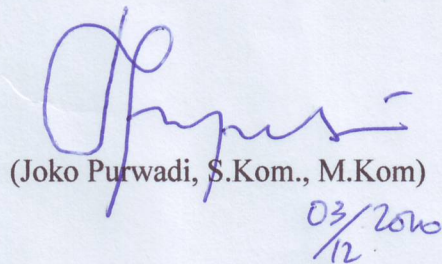 (Joko Purwadi, S.Kom., M.Kom)
03/12 2010